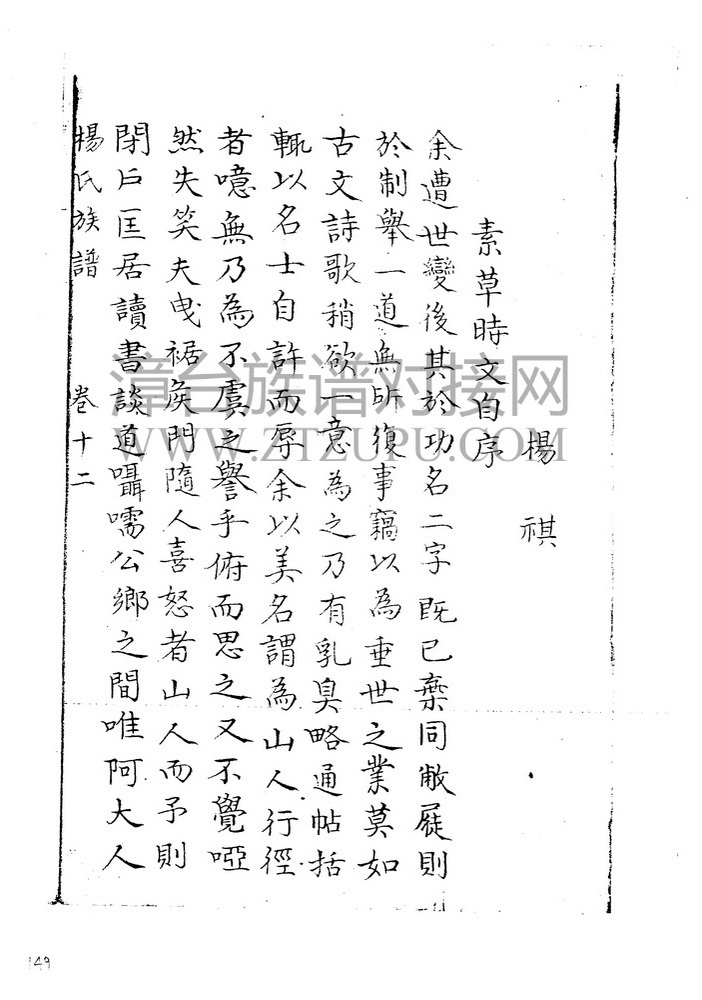 素草時文自序
楊祺
余遭世變後其於功名二字既已棄同敝屣則
於制舉一道無所復事竊以為垂世之業莫如
古文詩歌稍欲一意為之乃有乳臭略通帖括
輒以名士自許而辱余以美名謂為山人行徑
者噫無乃為不虞之譽乎俯而思之又不覺啞
然失笑夫曳裾矦門隨人喜怒者山人而予則
閉戶匡居讀書談道囁嚅公鄉之間唯阿大人
楊氏族譜 卷十二
149
漳台族谱对接网
WWW.ZTZUPU.COM